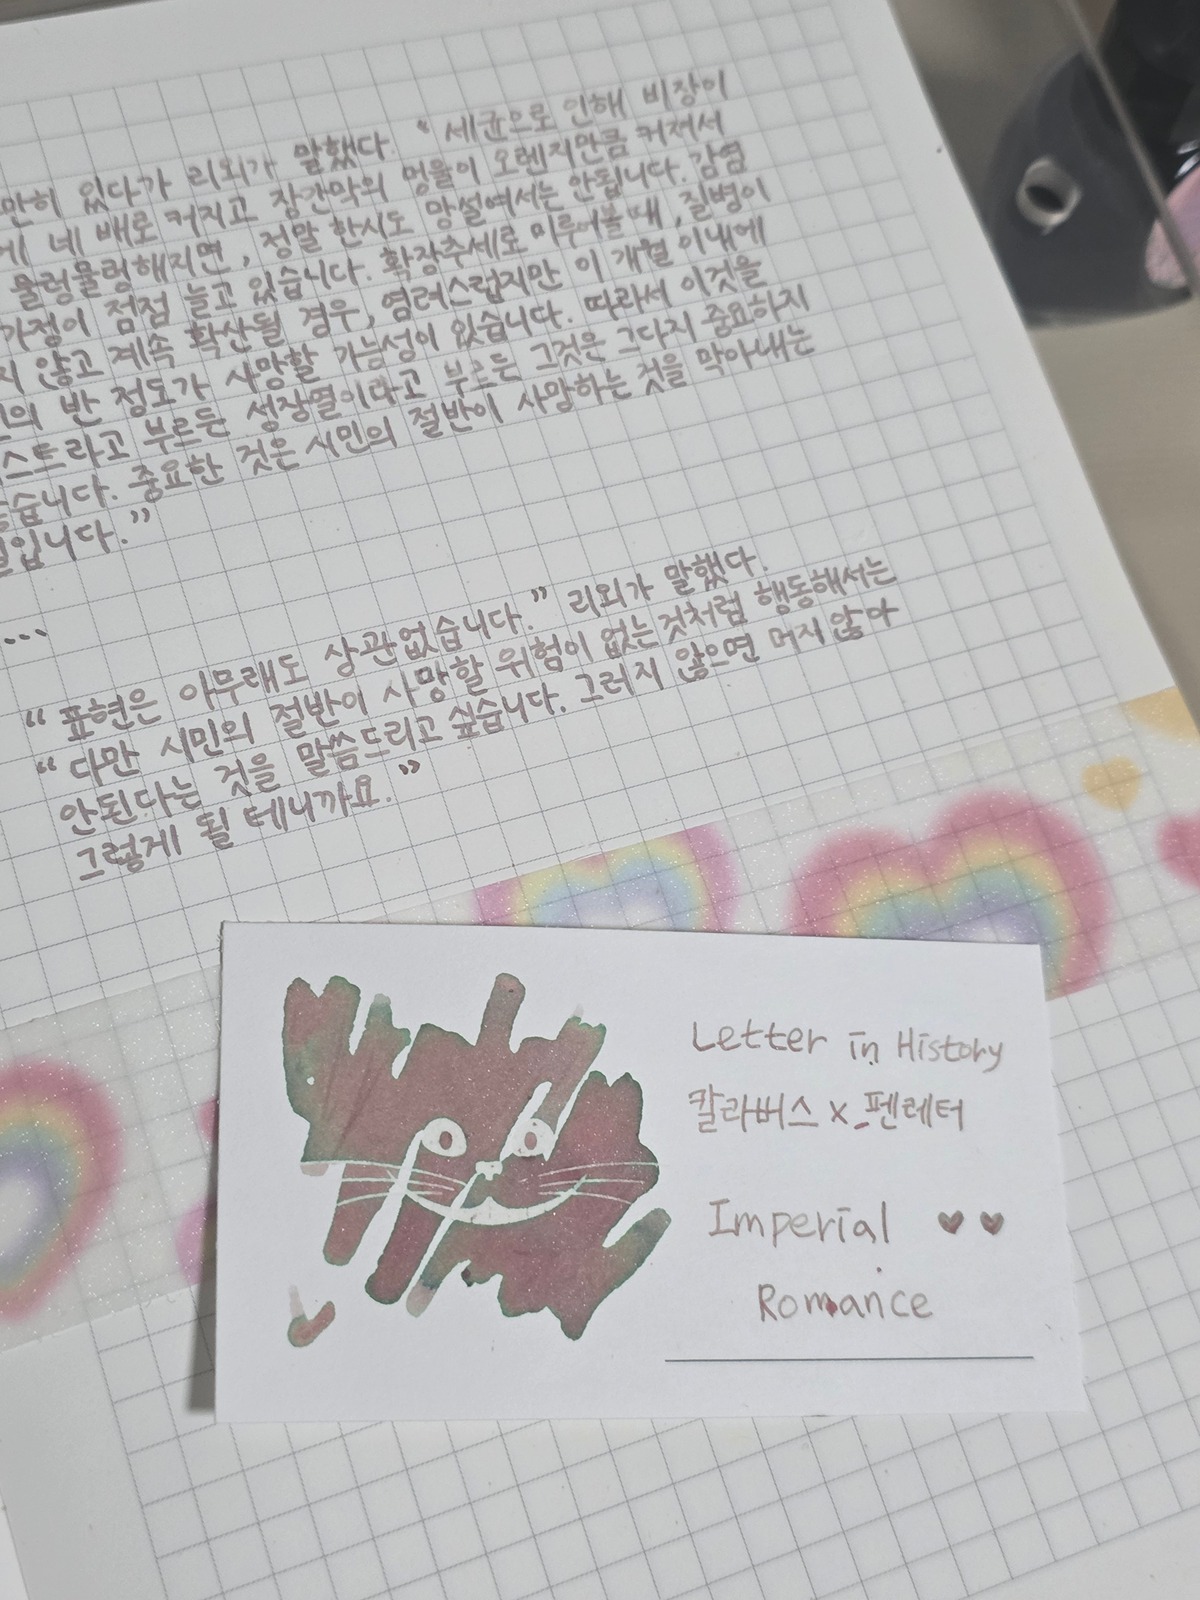 만히 있다가 리외가 말했다. “세균으로 인해 비장이
에 네 배로 커지고 장간막의 멍울이 오렌지만큼 커져서
물렁물렁해지면, 정말 한시도 망설여서는 안됩니다. 감염
가정이 점점 늘고 있습니다. 확장추세로 미루어볼 때, 질병이
지 않고 계속 확산될 경우, 염려스럽지만 이 개월 이내에
의 반 정도가 사망할 가능성이 있습니다. 따라서 이것을
스트라고 부르든 성장열이라고 부르든 그것은 그다지 중요하지
습니다. 중요한 것은 시민의 절반이 사망하는 것을 막아내는
일입니다.”
...
“표현은 아무래도 상관없습니다.” 리외가 말했다.
“다만 시민의 절반이 사망할 위험이 없는것처럼 행동해서는
안된다는 것을 말씀드리고 싶습니다. 그러지 않으면 머지 않아
그렇게 될 테니까요.”
Letter in History
칼라버스 x 펜레터
Imperial ♥♥
Romance